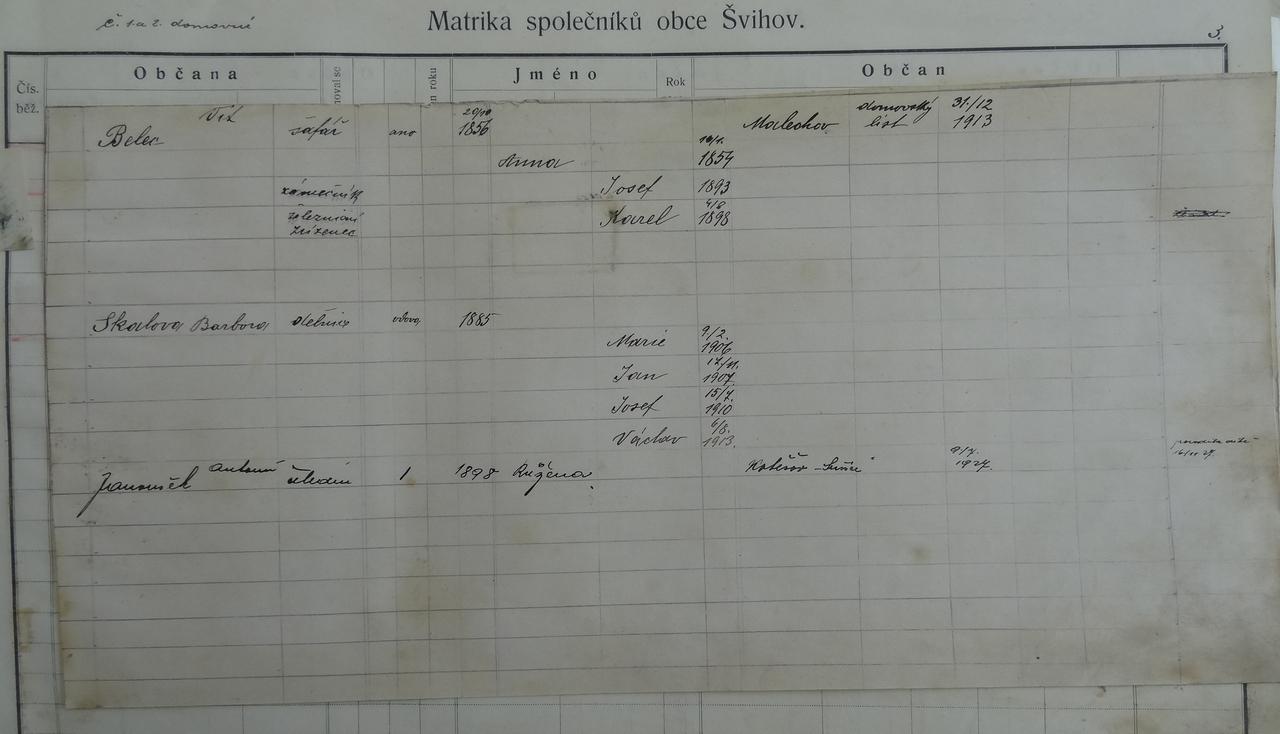 č. 1 a 2. domovní
Matrika společníků obce Švihov.
3.
Čís. běž.
Občana
Jméno
Rok
Občan
n roku
Belec Vít šafář ano 20/10 1856 Malechov domovský list 31./12 1913
Anna 1854
zámečník Josef 1893
železniční zřízenec Karel 4/8 1898
Skalova Barbora dělnice vdova 1885
Marie 9/2. 1906
Jan 17/11. 1907.
Josef 15/7. 1910
Václav 6/8. 1913.
Janoušek Antonín 1 1898 Růžena 9/7. 1927.